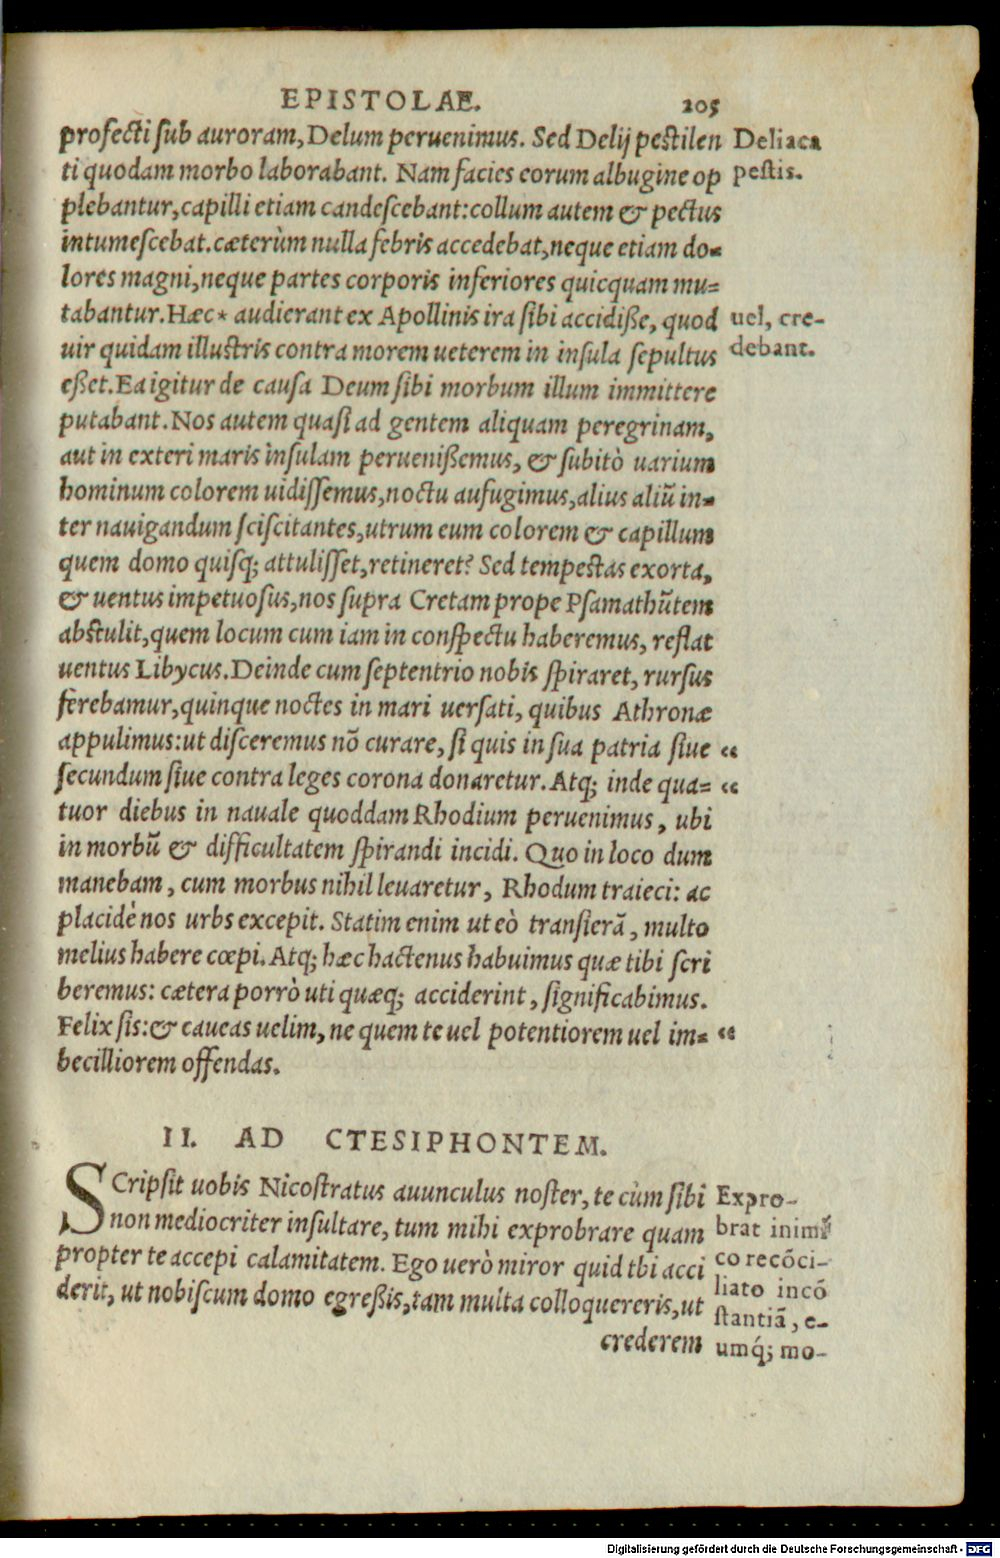 EPISTOLAE. 205
profecti sub auroram, Delum peruenimus. Sed Delij pestilen
ti quodam morbo laborabant. Nam facies eorum albugine op
plebantur, capilli etiam candescebant: collum autem & pectus
intumescebat. cæterùm nulla febris accedebat, neque etiam do-
lores magni, neque partes corporis inferiores quicquam mu-
tabantur. Hæc* audierant ex Apollinis ira sibi accidiße, quod
uir quidam illustris contra morem ueterem in insula sepultus
eßet. Ea igitur de causa Deum sibi morbum illum immittere
putabant. Nos autem quasi ad gentem aliquam peregrinam,
aut in exteri maris insulam perueniſßemus, & subitò uarium
hominum colorem uidissemus, noctu aufugimus, alius aliũ in-
ter nauigandum sciscitantes, utrum eum colorem & capillum
quem domo quisq; attulisset, retineret? Sed tempestas exorta,
& uentus impetuosus, nos supra Cretam prope Psamathũtem
abstulit, quem locum cum iam in conspectu haberemus, reflat
uentus Libycus. Deinde cum septentrio nobis spiraret, rursus
ferebamur, quinque noctes in mari uersati, quibus Athronæ
appulimus: ut disceremus nõ curare, si quis in sua patria siue “
secundum siue contra leges corona donaretur. Atq; inde qua- “
tuor diebus in nauale quoddam Rhodium peruenimus, ubi
in morbũ & difficultatem spirandi incidi. Quo in loco dum
manebam, cum morbus nihil leuaretur, Rhodum traieci: ac
placidè nos urbs excepit. Statim enim ut eò transierã, multo
melius habere cœpi. Atq; hæc hactenus habuimus quæ tibi scri
beremus: cætera porrò uti quæq; acciderint, significabimus.
Felix sis: & caueas uelim, ne quem te uel potentiorem uel im- “
becilliorem offendas.
Deliaca
pestis.
uel, cre-
debant.
II. AD CTESIPHONTEM.
SCripsit uobis Nicostratus auunculus noster, te cùm sibi
non mediocriter insultare, tum mihi exprobrare quam
propter te accepi calamitatem. Ego uerò miror quid tbi acci
derit, ut nobiscum domo egreßis, tam multa colloquereris, ut
crederem
Expro-
brat inimi
co recõci-
liato incõ
stantiã, e-
umq́; mo-
Digitalisierung gefördert durch die Deutsche Forschungsgemeinschaft - DFG